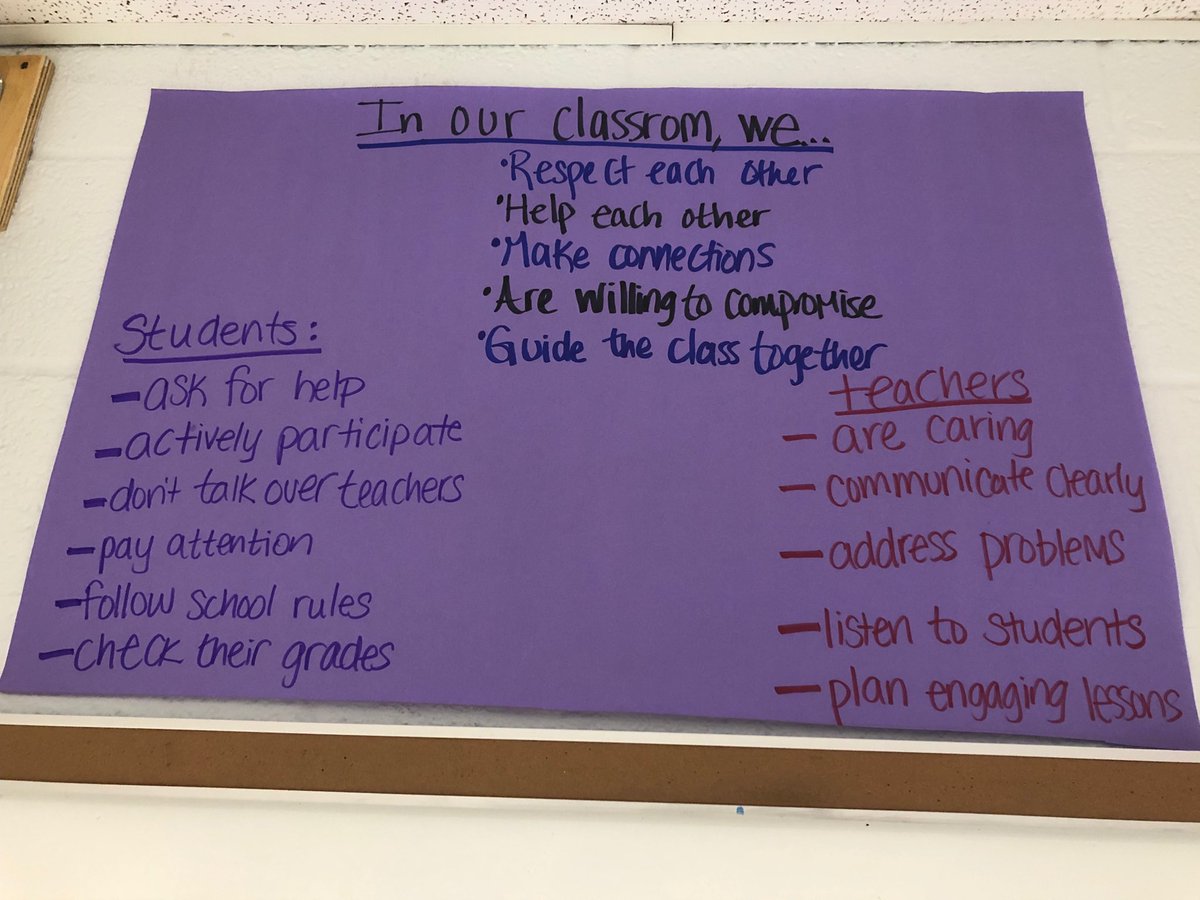 In our classrom, we...
•Respect each other
•Help each other
•Make connections
•Are willing to compromise
•Guide the class together
Students:
-ask for help
-actively participate
-don't talk over teachers
-pay attention
-follow school rules
-check their grades
teachers
- are caring
- communicate clearly
-address problems
-listen to students
-plan engaging lessons